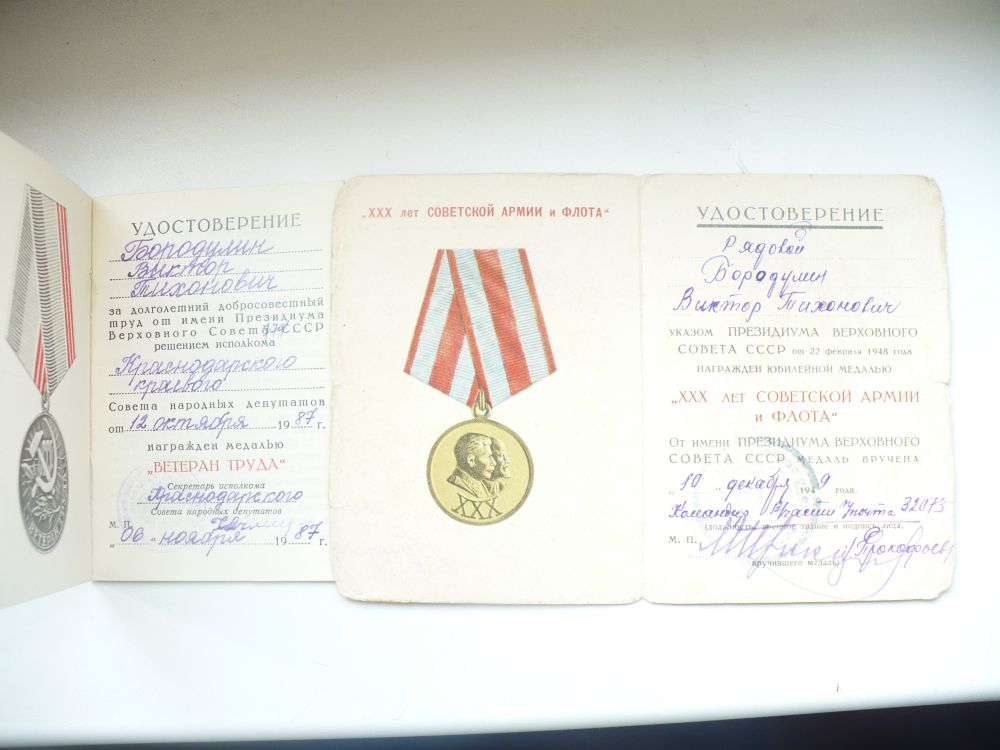 УДОСТОВЕРЕНИЕ
Бородулин
Виктор
Тихонович
за долголетний добросовестный
труд от имени Президиума
Верховного Совета СССР
решением исполкома
Краснодарского
краевого
Совета народных депутатов
от 12 октября 1987 г.
награжден медалью
„ВЕТЕРАН ТРУДА“
Секретарь исполкома
Краснодарского
Совета народных депутатов
М. П.
„06“ ноября 1987 г.
„XXX лет СОВЕТСКОЙ АРМИИ и ФЛОТА“
XXX
УДОСТОВЕРЕНИЕ
Рядовой
Бородулин
Виктор Тихонович
УКАЗОМ ПРЕЗИДИУМА ВЕРХОВНОГО
СОВЕТА СССР от 22 февраля 1948 года
НАГРАЖДЕН ЮБИЛЕЙНОЙ МЕДАЛЬЮ
„XXX ЛЕТ СОВЕТСКОЙ АРМИИ
и ФЛОТА“
От имени ПРЕЗИДИУМА ВЕРХОВНОГО
СОВЕТА СССР МЕДАЛЬ ВРУЧЕНА
„10„ декабря 1949 года.
Командир в/части 32073
(должность, военное звание и подпись лица,
М. П. Прокофьев
вручившего медаль)